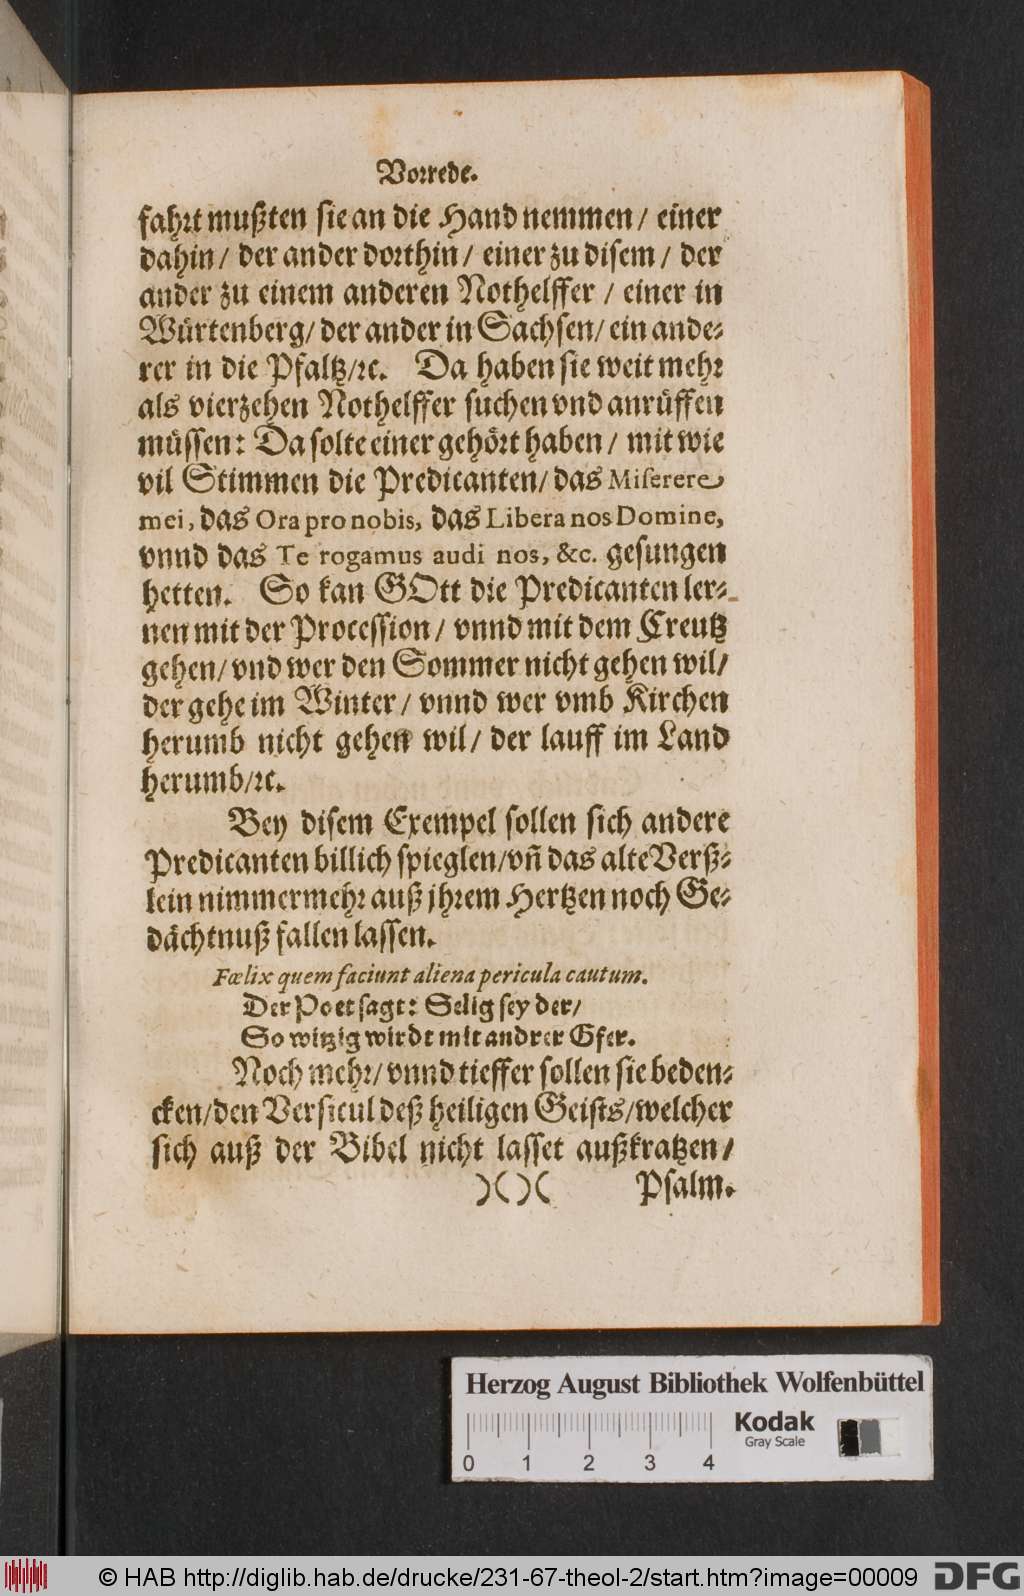 Vorrede.
fahrt mußten sie an die Hand nemmen/ einer
dahin/ der ander dorthin/ einer zu disem/ der
ander zu einem anderen Nothelffer / einer in
Würtenberg/ der ander in Sachsen/ ein ande-
rer in die Pfaltz/ꝛc. Da haben sie weit mehr
als vierzehen Nothelffer suchen vnd anrüffen
müssen: Da solte einer gehört haben / mit wie
vil Stimmen die Predicanten/ das Miserere
mei, das Ora pro nobis, das Libera nos Domine,
vnnd das Te rogamus audi nos, &c. gesungen
hetten. So kan GOtt die Predicanten ler-
nen mit der Procession / vnnd mit dem Creutz
gehen/ vnd wer den Sommer nicht gehen wil/
der gehe im Winter / vnnd wer vmb Kirchen
herumb nicht gehen wil/ der lauff im Land
herumb/ꝛc.
Bey disem Exempel sollen sich andere
Predicanten billich spieglen/ vñ das alte Verß-
lein nimmermehr auß jhrem Hertzen noch Ge-
dächtnuß fallen lassen.
Fœlix quem faciunt aliena pericula cautum.
Der Poet sagt: Selig sey der/
So witzig wirdt mit andrer Gfer.
Noch mehr/ vnnd tieffer sollen sie beden-
cken/ den Versicul deß heiligen Geists/ welcher
sich auß der Bibel nicht lasset außkratzen /
)( )( Psalm.
Herzog August Bibliothek Wolfenbüttel
Kodak
Gray Scale
0 1 2 3 4
© HAB http://diglib.hab.de/drucke/231-67-theol-2/start.htm?image=00009
DFG